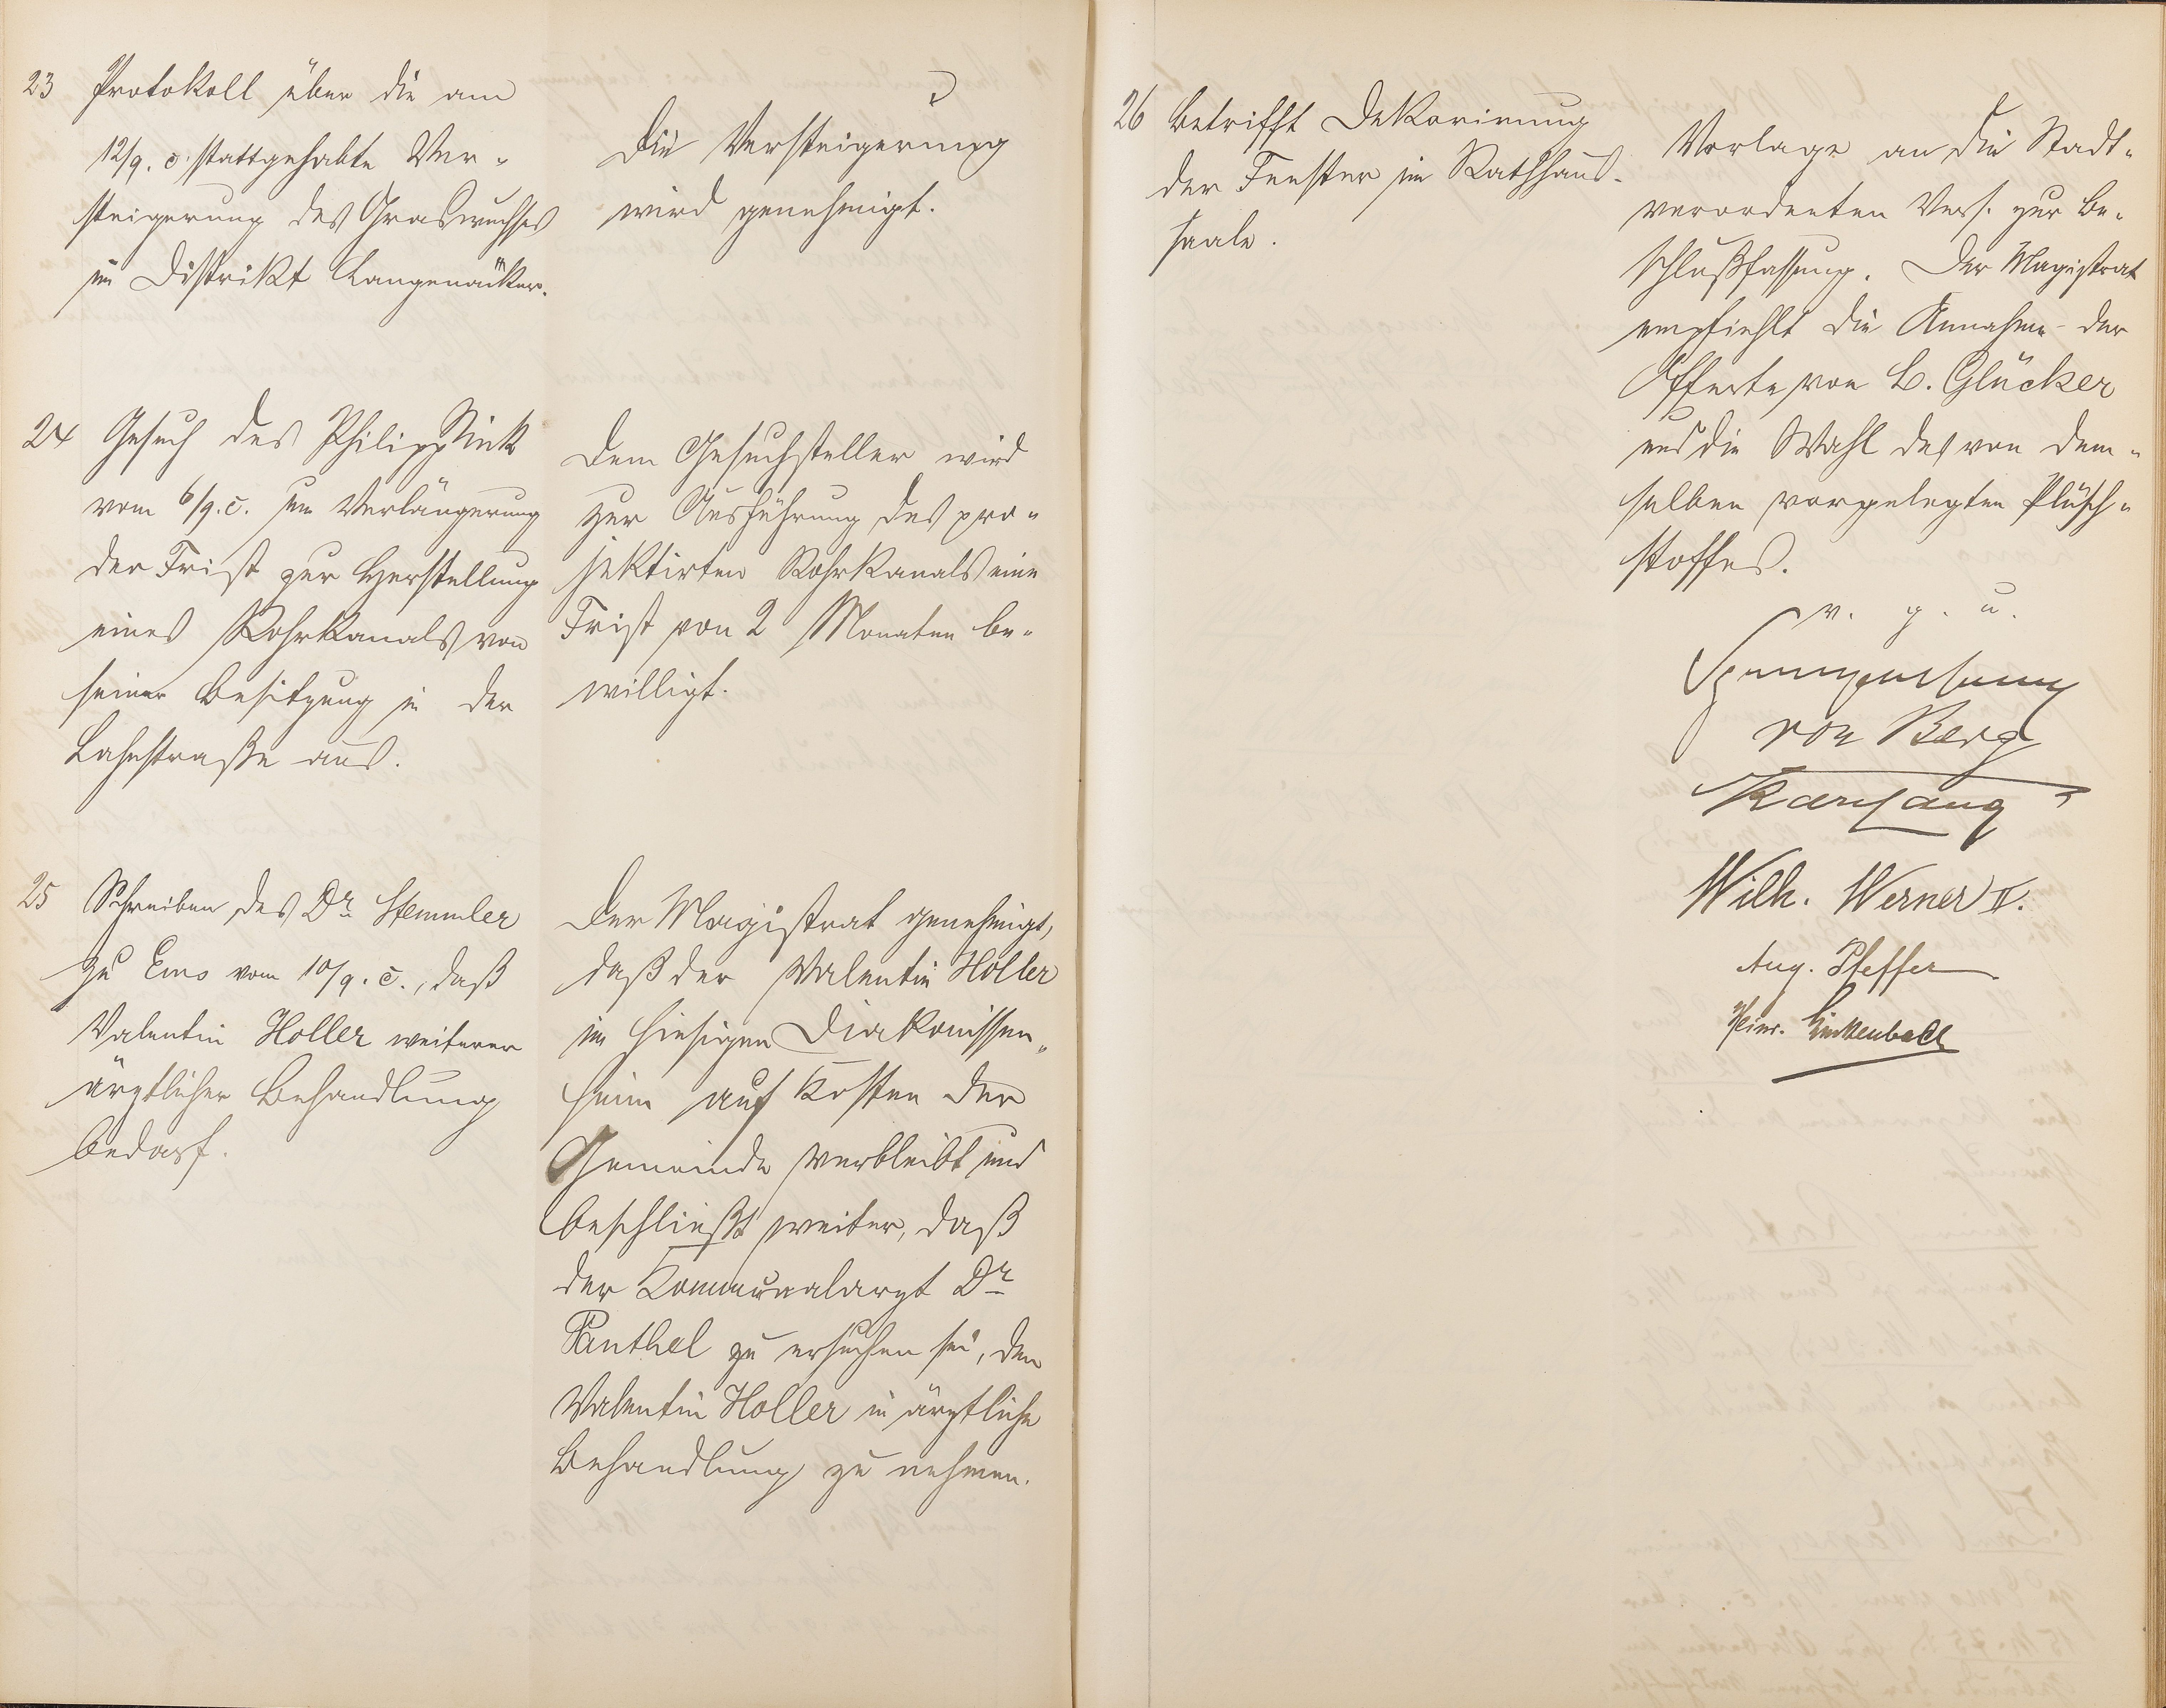 23 Protokoll über die am
12/9. c. stattgehabte Ver-
steigerung des Graswuchses
im Distrikt Langenäcker.
Die Versteigerung
wird genehmigt.
24 Gesuch des Philipp Sink
vom 6/9. c. um Verlängerung
der Frist zur Herstellung
eines Rohrkanals von
seiner Besitzung in der
Lahnstraße aus.
Dem Gesuchsteller wird
zur Ausführung des pro-
jektirten Rohrkanals eine
Frist von 2 Monaten be-
willigt.
25 Schreiben des Dr. Stemmler
zu Ems vom 10/9. c., daß
Valentin Holler weiterer
ärztlicher Behandlung
bedarf.
Der Magistrat genehmigt,
daß der Valentin Holler
im hiesigen Diakonissen-
heim auf Kosten der
Gemeinde verbleibt und
beschließt weiter, daß
der Kommunalarzt Dr.
Panthel zu ersuchen sei, den
Valentin Holler in ärztliche
Behandlung zu nehmen.
26 Betrifft Dekorirung
der Fenster im Rathhaus-
saale.
Vorlage an die Stadt-
verordneten Vers. zur Be-
schlußfassung. Der Magistrat
empfiehlt die Annahme der
Offerte von L. Glücker
und die Wahl des von dem-
selben vorgelegten Plüsch-
stoffes.
v. g. u.
von Berg
Wilh. Werner II.
Aug. Pfeffer
Heinr. Linkenbach